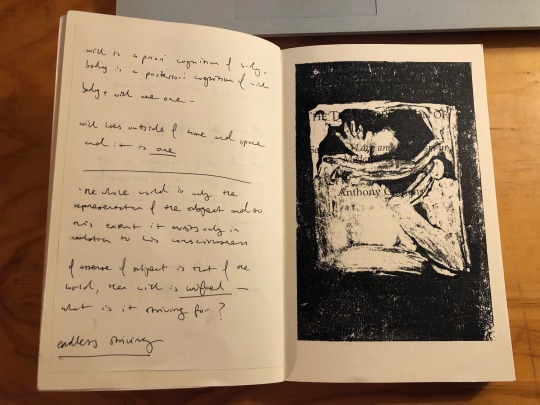 will is a priori cognition of body,
body is a posteriori cognition of will
body + will are one –
will lies outside of time and space
and it is one
the whole world is only the
representation of the subject and to
this extent it exists only in
relation to his consciousness
if essence of subject is that of the
world, then will is unified –
what is it striving for?
endless striving
THE T
and
Anthony